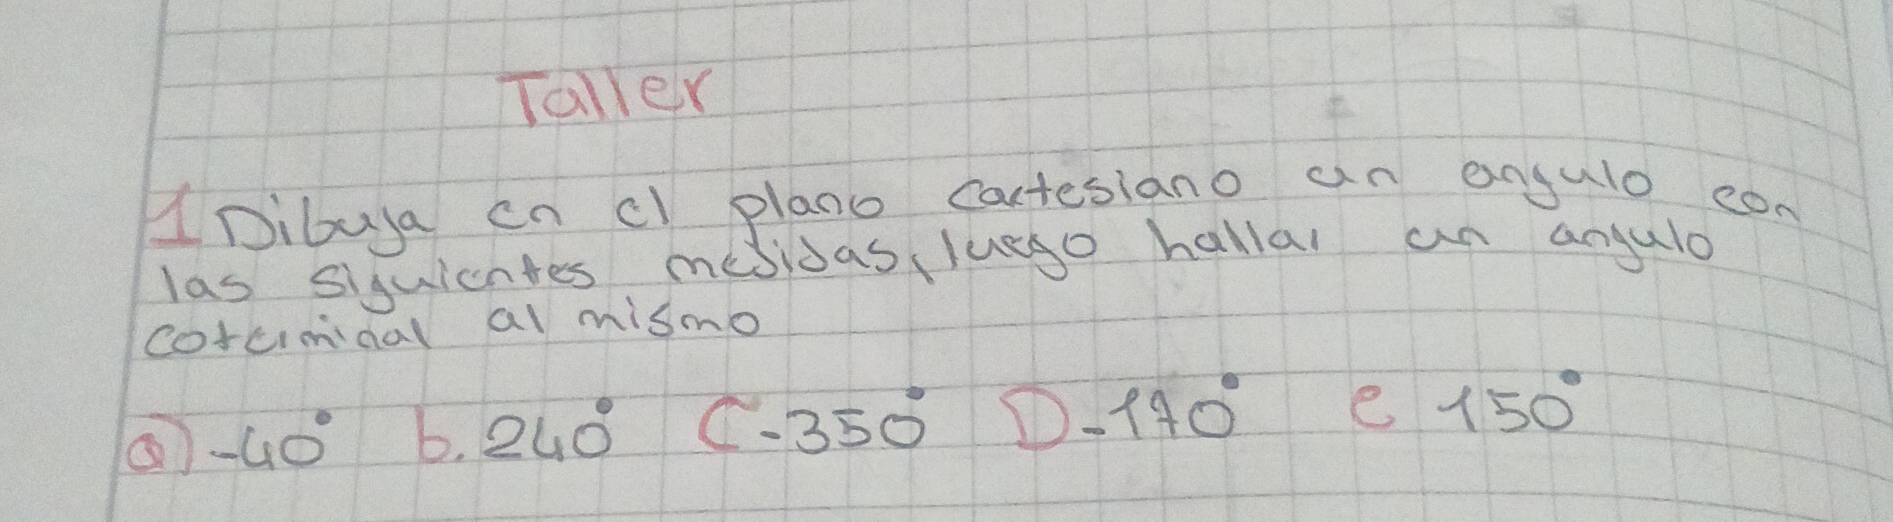 Taller
1 Dibuja en el plano cartesiano un angulo con
las siguientes medidas, luego hallar un angulo
coterminal al mismo
a) -40° b. 240° C -350° D -170° e 150°